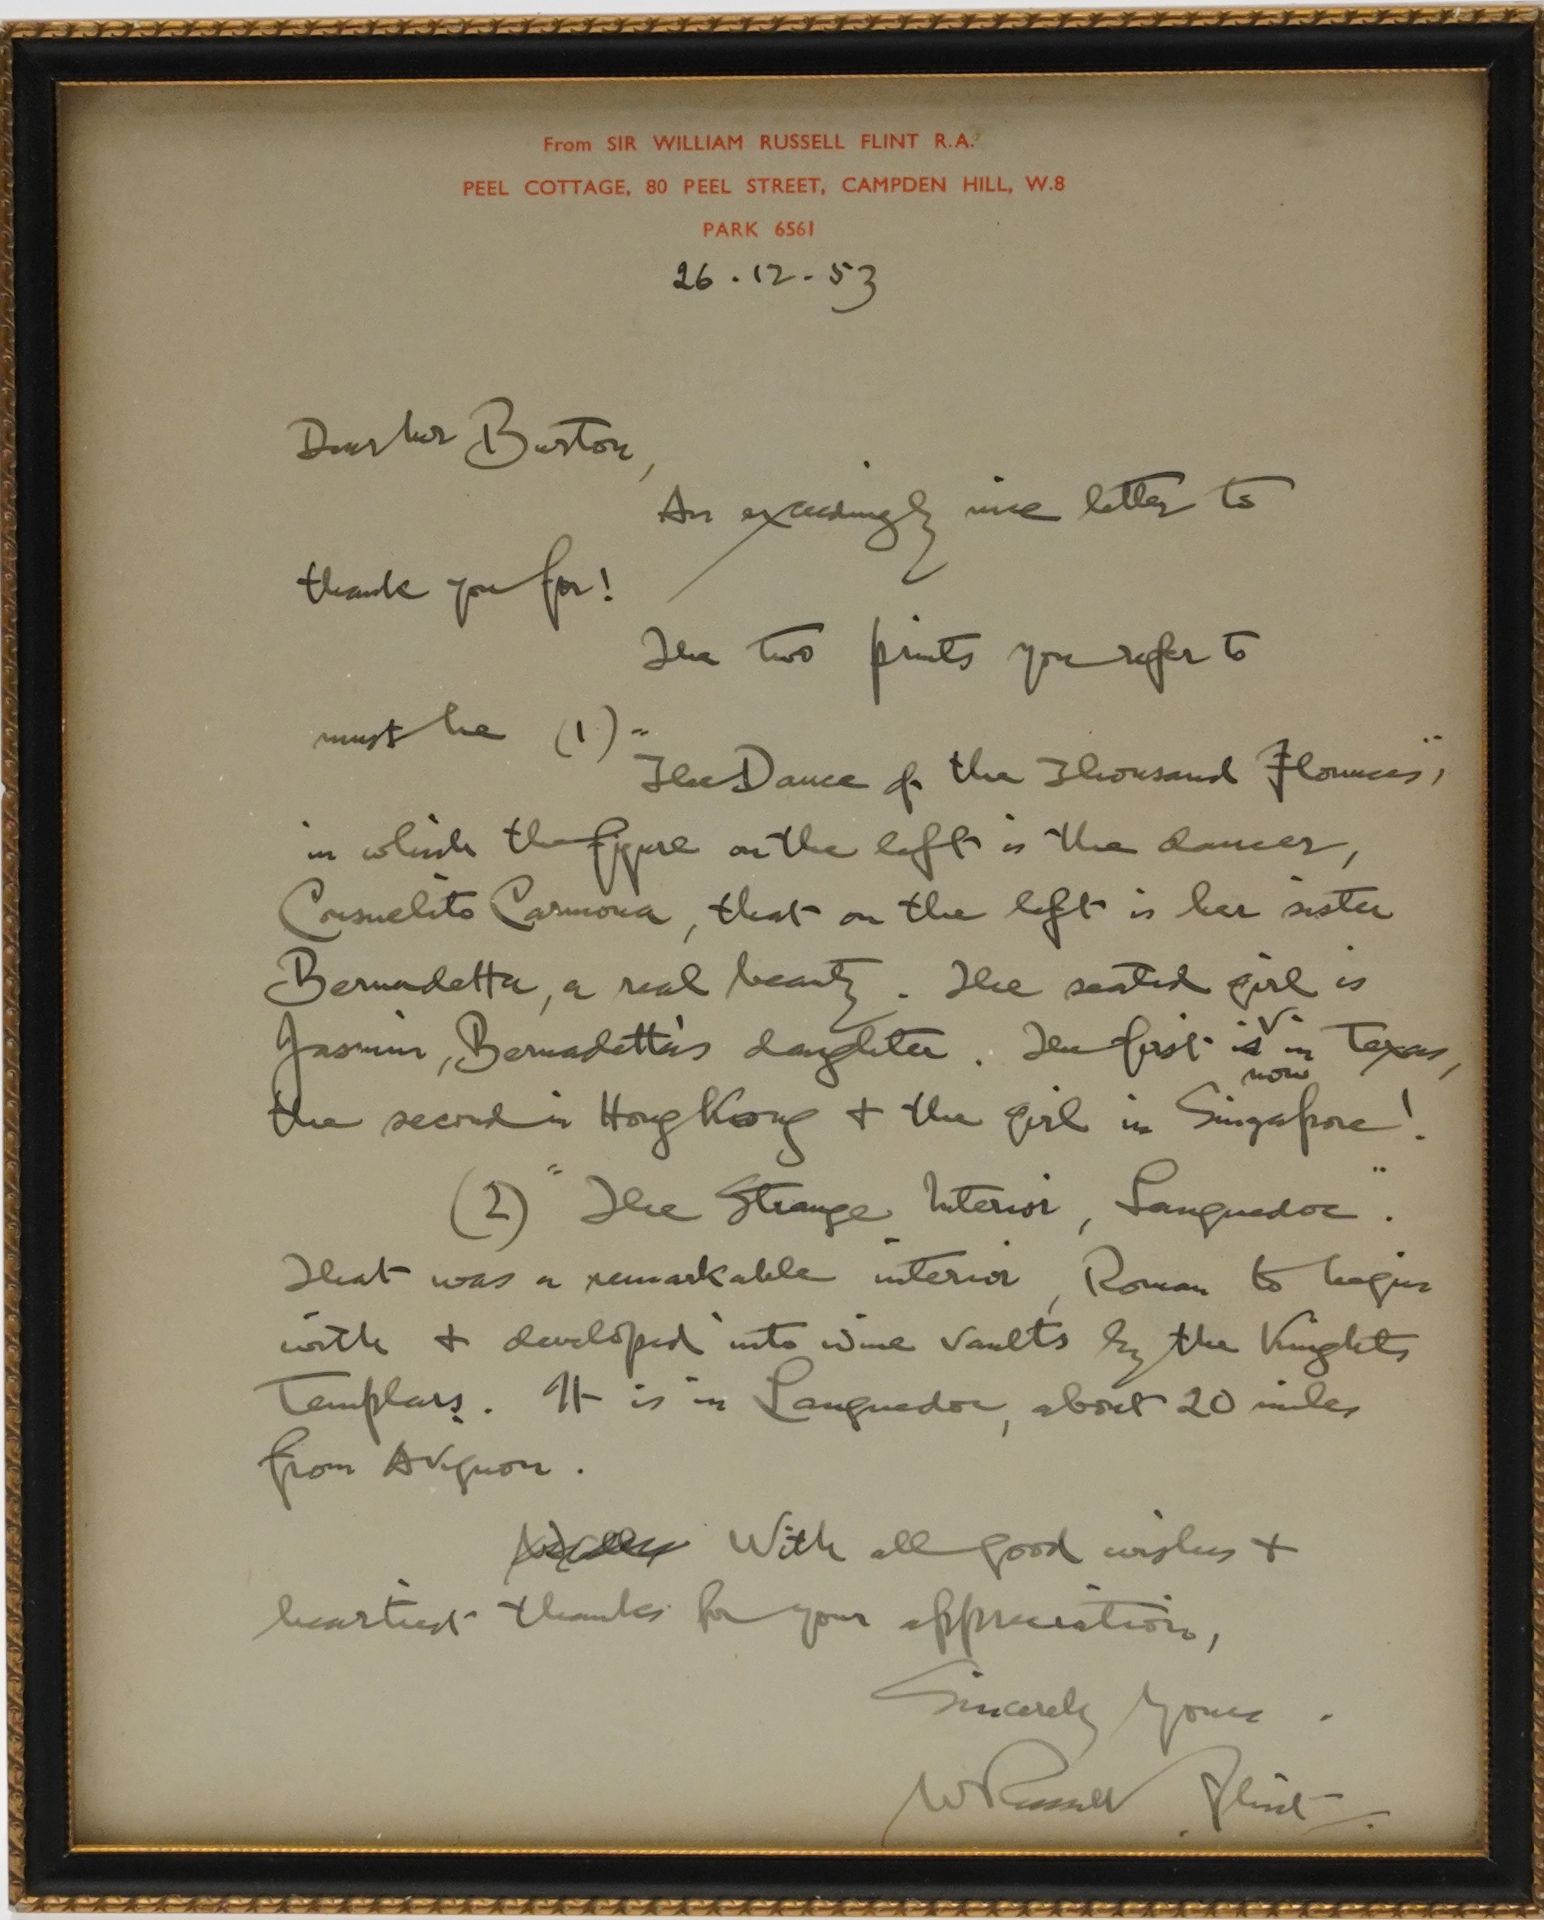 From SIR WILLIAM RUSSELL FLINT R.A.
PEEL COTTAGE, 80 PEEL STREET, CAMPDEN HILL, W.8
PARK 6561
26 . 12 . 53
Dear Mr Burton,
An exceedingly nice letter to
thank you for!
The two prints you refer to
must be (1) "
The Dance of the Thousand Flounces",
in which the figure on the left is the dancer,
Consuelito Carmona, that on the left is her sister
Bernadetta, a real beauty. The seated girl is
Jasmin, Bernadetta's daughter. The first is in Texas,
now
the second in Hong Kong + the girl in Singapore!
(2) "The Strange Interior, Languedoc".
That was a remarkable interior, Roman to begin
with + developed into wine vaults by the Knights
Templars. It is in Languedoc, about 20 miles
from Avignon.
With all good wishes +
heartiest thanks for your appreciation,
Sincerely Yours.
W Russell Flint.